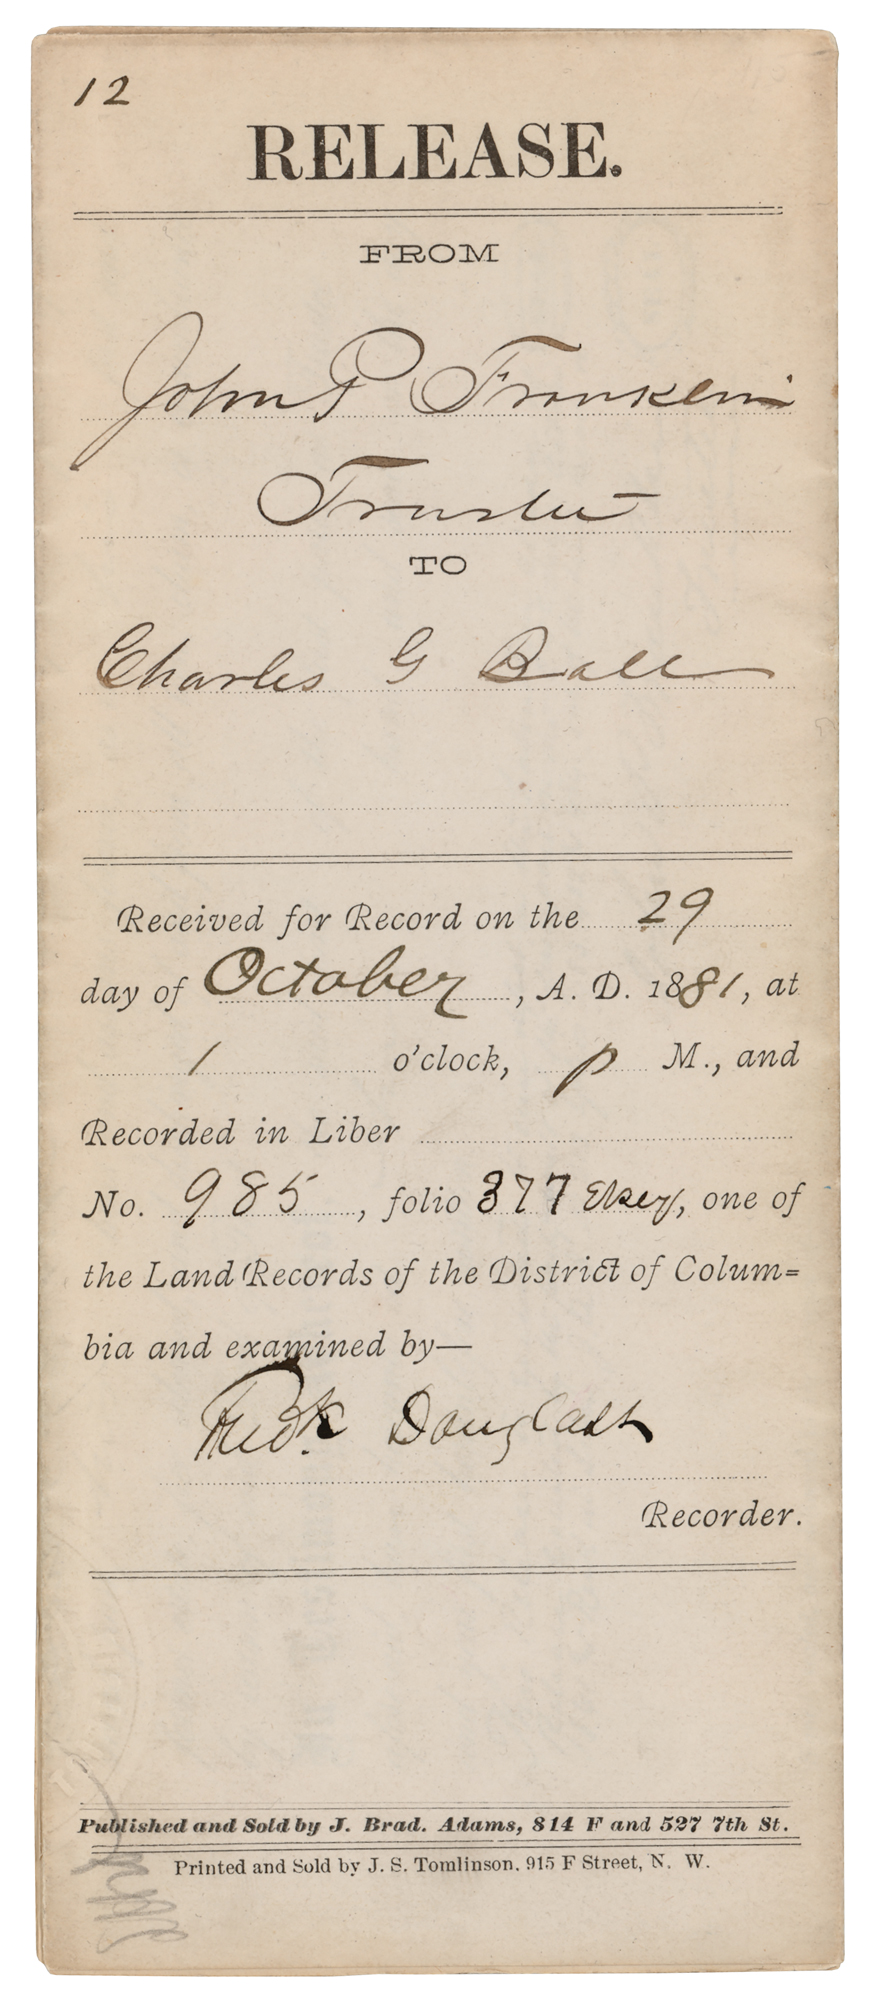 12
RELEASE.
FROM
John P Franklin
Trustee
TO
Charles G Ball
Received for Record on the 29
day of October, A. D. 1881, at
1 o'clock, p M., and
Recorded in Liber
No. 985, folio 377 , one of
the Land Records of the District of Colum=
bia and examined by—
Fredk. Douglass
Recorder.
Published and Sold by J. Brad. Adams, 814 F and 527 7th St.
Printed and Sold by J. S. Tomlinson, 915 F Street, N. W.